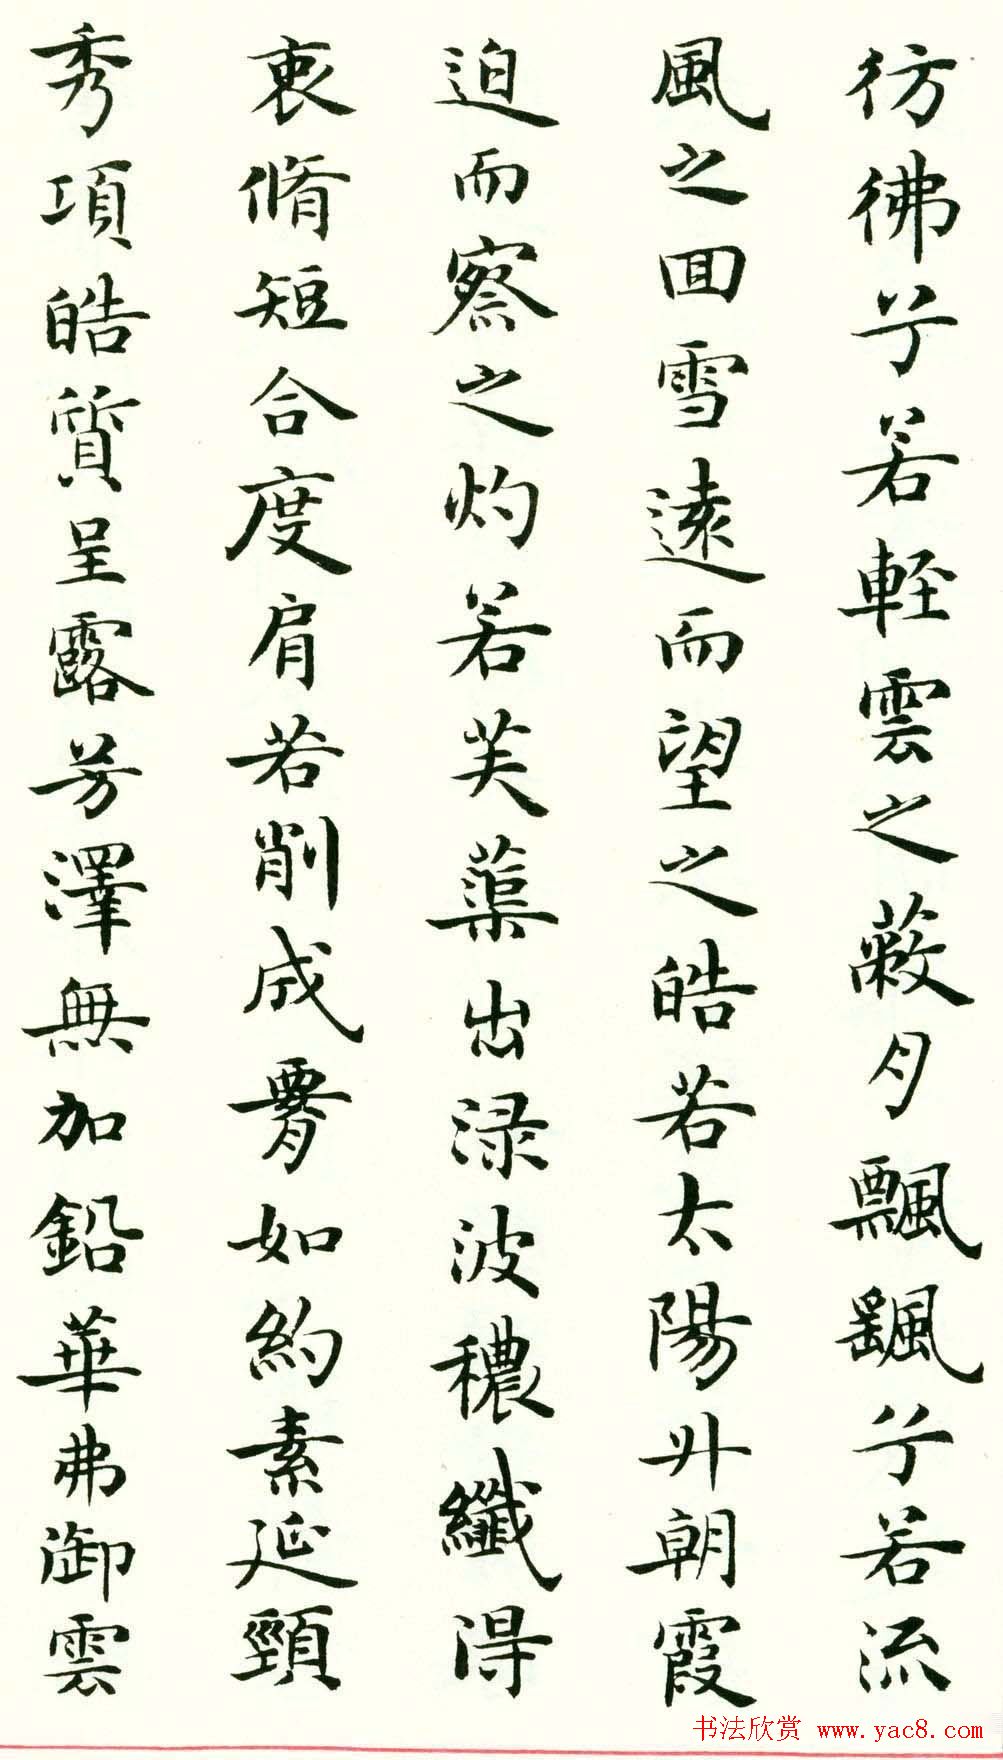 彷彿兮若輕雲之蔽月飄颻兮若流
風之回雪遠而望之皓若太陽升朝霞
迫而察之灼若芙蕖出淥波穠纖得
衷脩短合度肩若削成腰如約素延頸
秀項皓質呈露芳澤無加鉛華弗御雲
书法欣赏 www.yac8.com